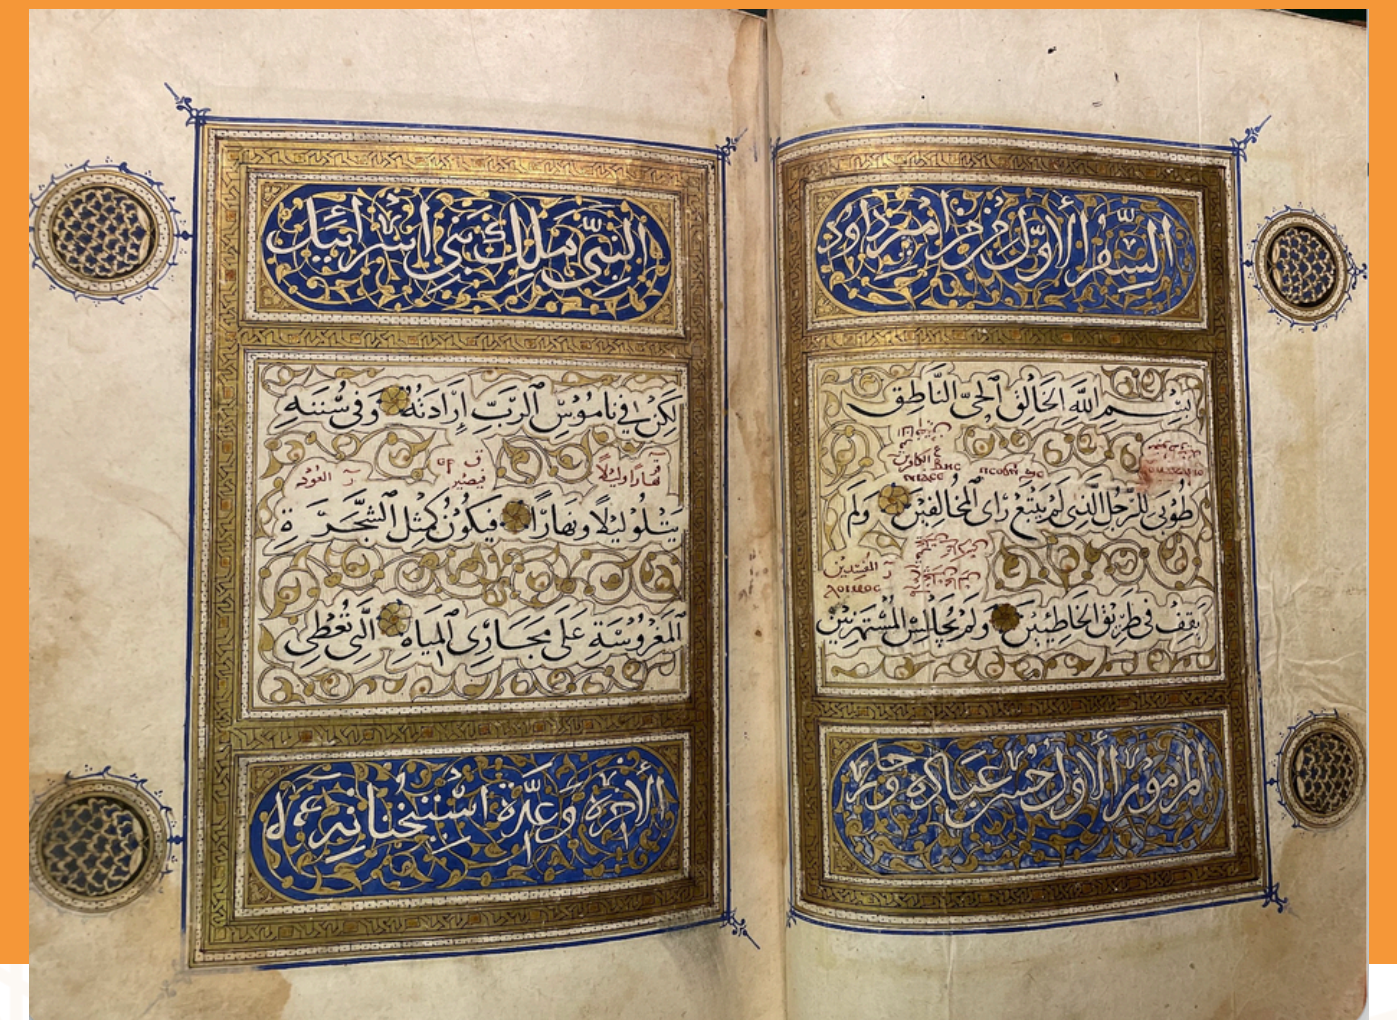 السِّفْرُ الأوّل من مزامير داود
بسم الله الخالق الحيّ الناطق
طُوبَى للرَّجُل الَّذي لَمْ يَتَّبِعْ رَاي المخَالِفِينَ وَلَمْ
المفسدين
λοιμος
يَقِفْ في طَرِيق الخَاطِيينَ وَلَمْ يُجَالِس المُسْتَهزِيِّينَ
المزمور الأول حسن عباده وخبر
النبيّ ملك بني اسرائيل
لَكِنْ في نَامُوسِ الرَّبِّ إرَادَتُهُ وَفي سُنَنِهِ
نهارا وليلًا
ق
فيصير
العود
يَتْلُو لَيْلًا وَنَهَارًا فَيَكُونُ كَمِثْلِ الشَّجَرَةِ
المَغْرُوسَةِ عَلَى مَجَارِي المِيَاهِ الَّتي تُعْطِي
الأخرة وعدّة